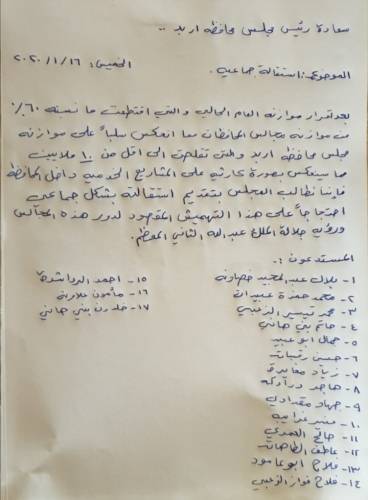 سعادة رئيس مجلس محافظة اربد ..
الموضوع: استقالة جماعية. الخميس: ٢٠٢٠/١/١٦
بعد اقرار موازنة العام الحالي والتي اقتطعت ما نسبته ٦٠٪
من موازنة مجالس المحافظات مما انعكس سلباً على موازنة
مجلس محافظة اربد والتي تقلصت الى اقل من ١٠ ملايين
مما سينعكس بصورة كارثية على المشاريع الخدمية داخل المحافظة
فإننا نطالب المجلس بتقديم استقالته بشكل جماعي
احتجاجاً على هذا التهميش المقصود لدور هذه المجالس
ورؤية جلالة الملك عبدالله الثاني المعظم.
المستدعون :.
١- بلال عبدالمجيد خصاونه
٢- محمد حمزة عبيدات
٣- محمد تيسير الزعبي
٤- حاتم بني هاني
٥- جمال ابو عبيد
٦- حسن رقيبات
٧- زياد مغايره
٨- هاجد درادكه
٩- جهاد مقدادي
١٠- منير غرايبه
١١- صالح العمري
١٢- عاطف الطاهات
١٣- فلاح ابو عامود
١٤- فلاح فواز الزعبي
١٥- احمد الرواشدة
١٦- مأمون علاونه
١٧- خلدون بني هاني